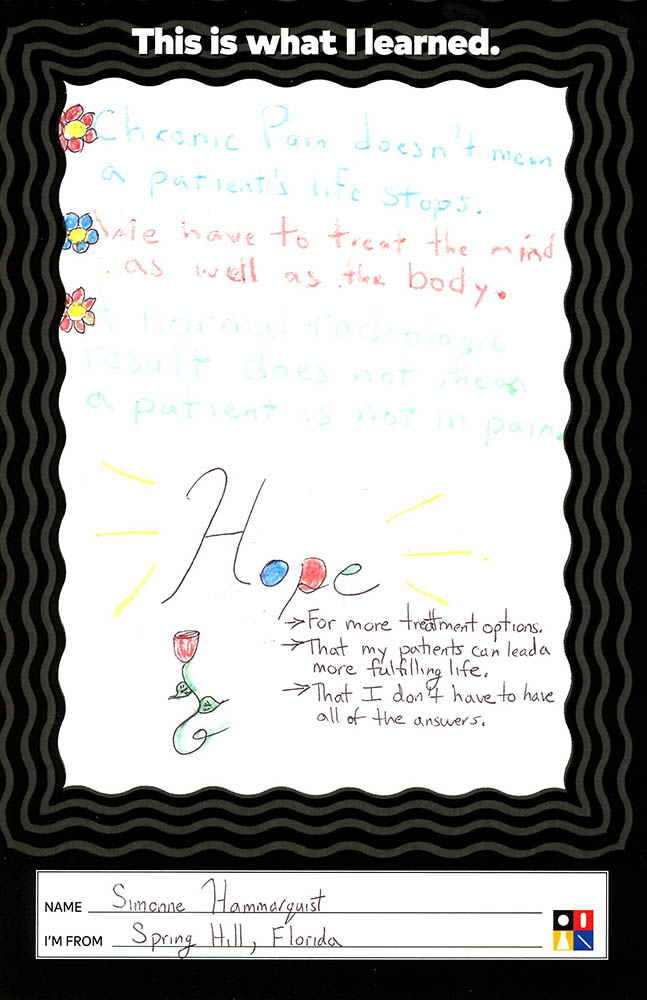 This is what I learned.
Chronic Pain doesn't mean
a patient's life stops.
We have to treat the mind
as well as the body.
A normal radiologic
result does not mean
a patient is not in pain.
Hope
→For more treatment options.
→That my patients can lead a
more fulfilling life.
→That I don't have to have
all of the answers.
NAME Simonne Hammarquist
I'M FROM Spring Hill, Florida